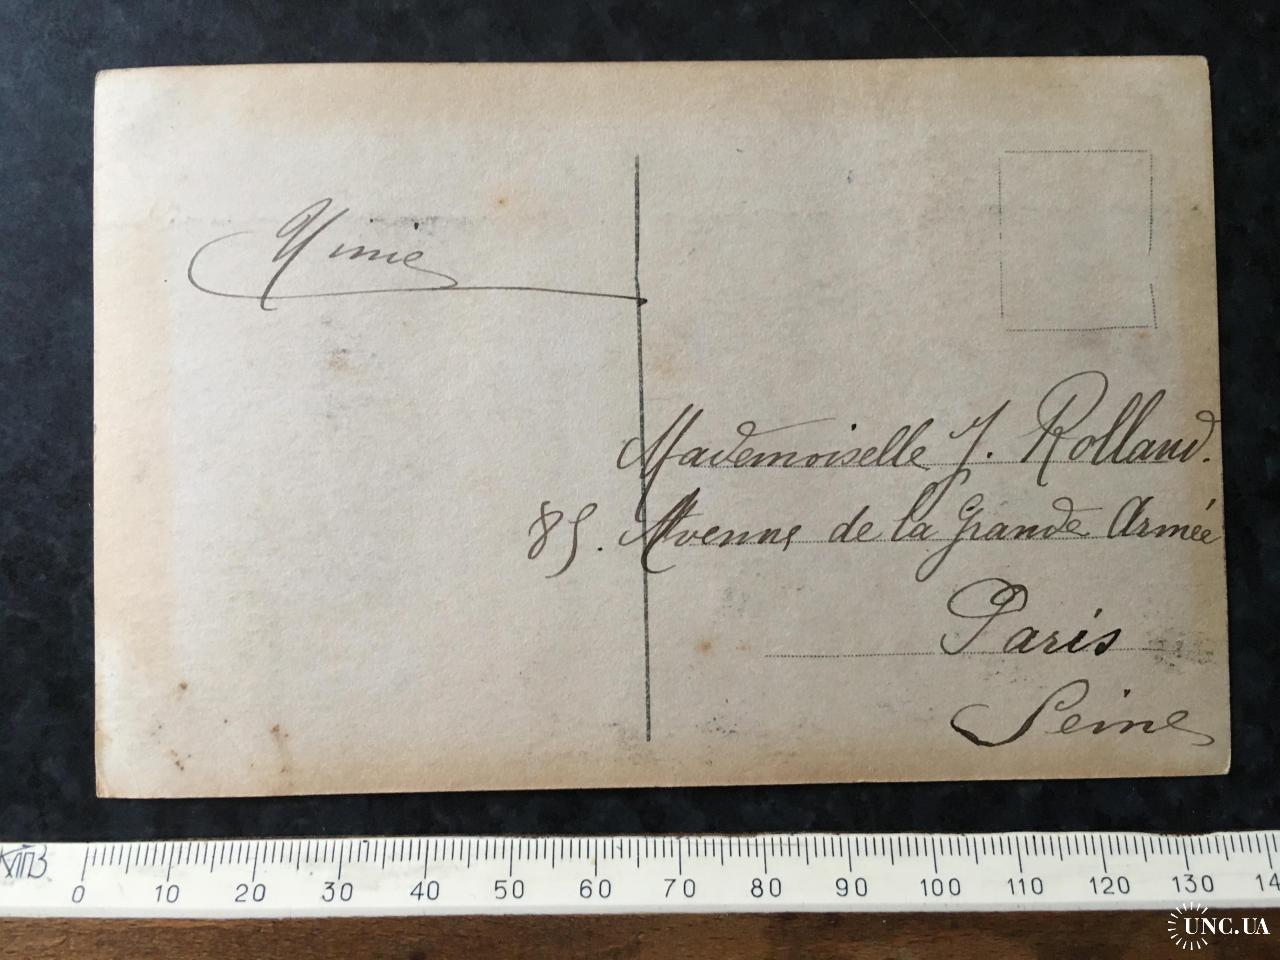 Ninie
Mademoiselle J. Rolland.
85. Avenue de la Grande Armée
Paris
Seine
0 10 20 30 40 50 60 70 80 90 100 110 120 130 14
UNC.UA